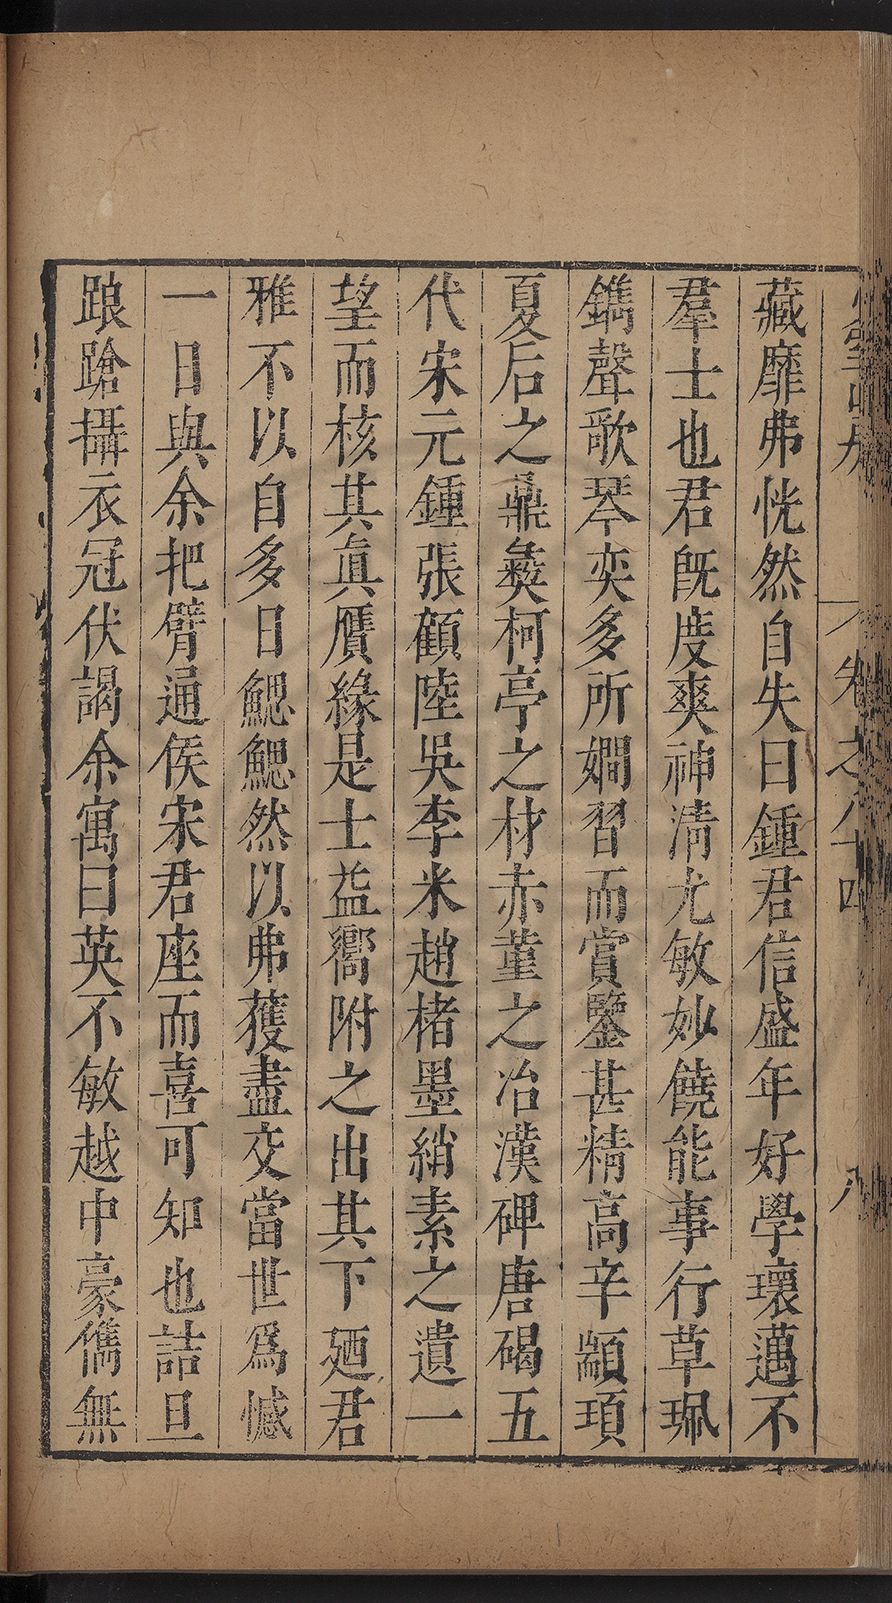 藏靡弗恍然自失曰鍾君信盛年好學瓌邁不
羣士也君旣度爽神清尤敏妙饒能事行草珮
鐫聲歌琴奕多所嫺習而賞鑒甚精高辛顓頊
夏后之鼎彝柯亭之材赤菫之冶漢碑唐碣五
代宋元鍾張顧陸吳李米趙楮墨綃素之遺一
望而核其眞贗緣是士益嚮附之出其下廼君
雅不以自多日鰓鰓然以弗獲盡交當世爲憾
一日與余把臂通侯宋君座而喜可知也詰旦
踉蹌攝衣冠伏謁余寓曰英不敏越中豪儁無
卷之八十四
八